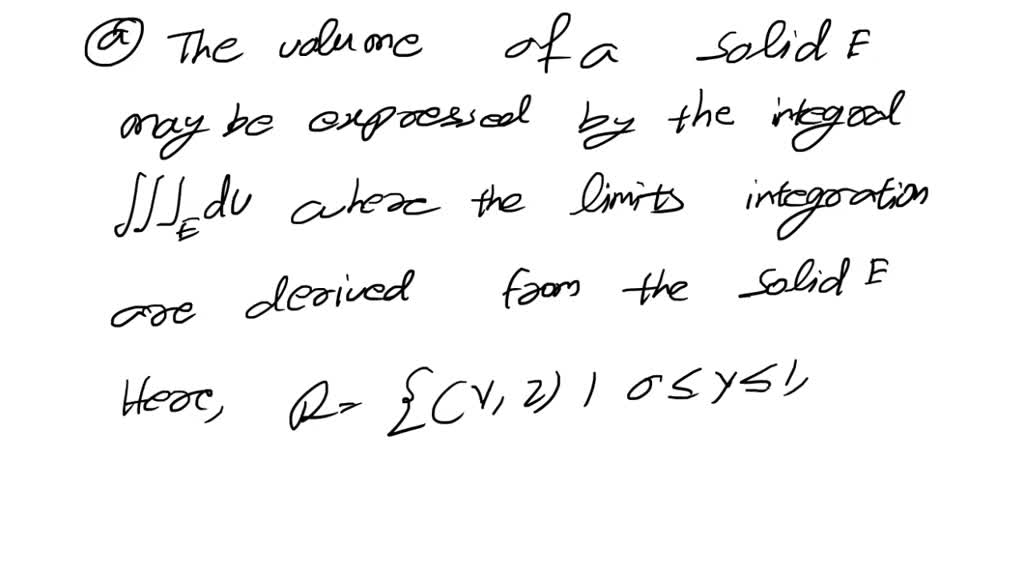 ⓐ The volume of a solid E
may be expressed by the integral
∭_E dv where the limits integration
are derived from the solid E
Here, R = {(y, z) | 0 ≤ y ≤ 1,